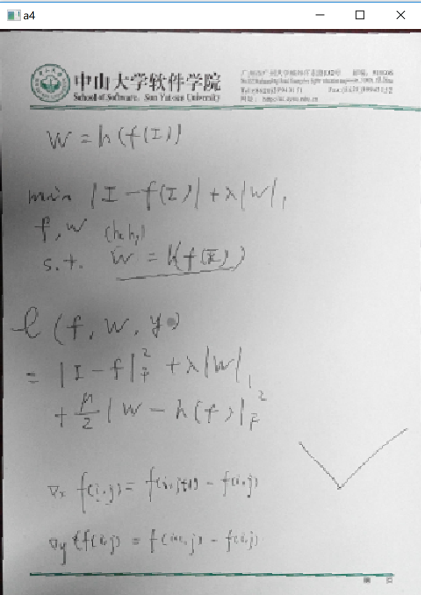 a4
中山大学软件学院
School of Software, Sun Yat-sen University
W = h(f(I))
min |I - f(I)| + λ|W|₁
f, w (hx hy)
s.t. W = h(f(I))
ℓ(f, W, y)
= |I - f|²_F + λ|W|₁
+ μ/2 |W - h(f)|²_F
∇x f(i,j) = f(i,j+1) - f(i,j)
∇y f(i,j) = f(i+1,j) - f(i,j)